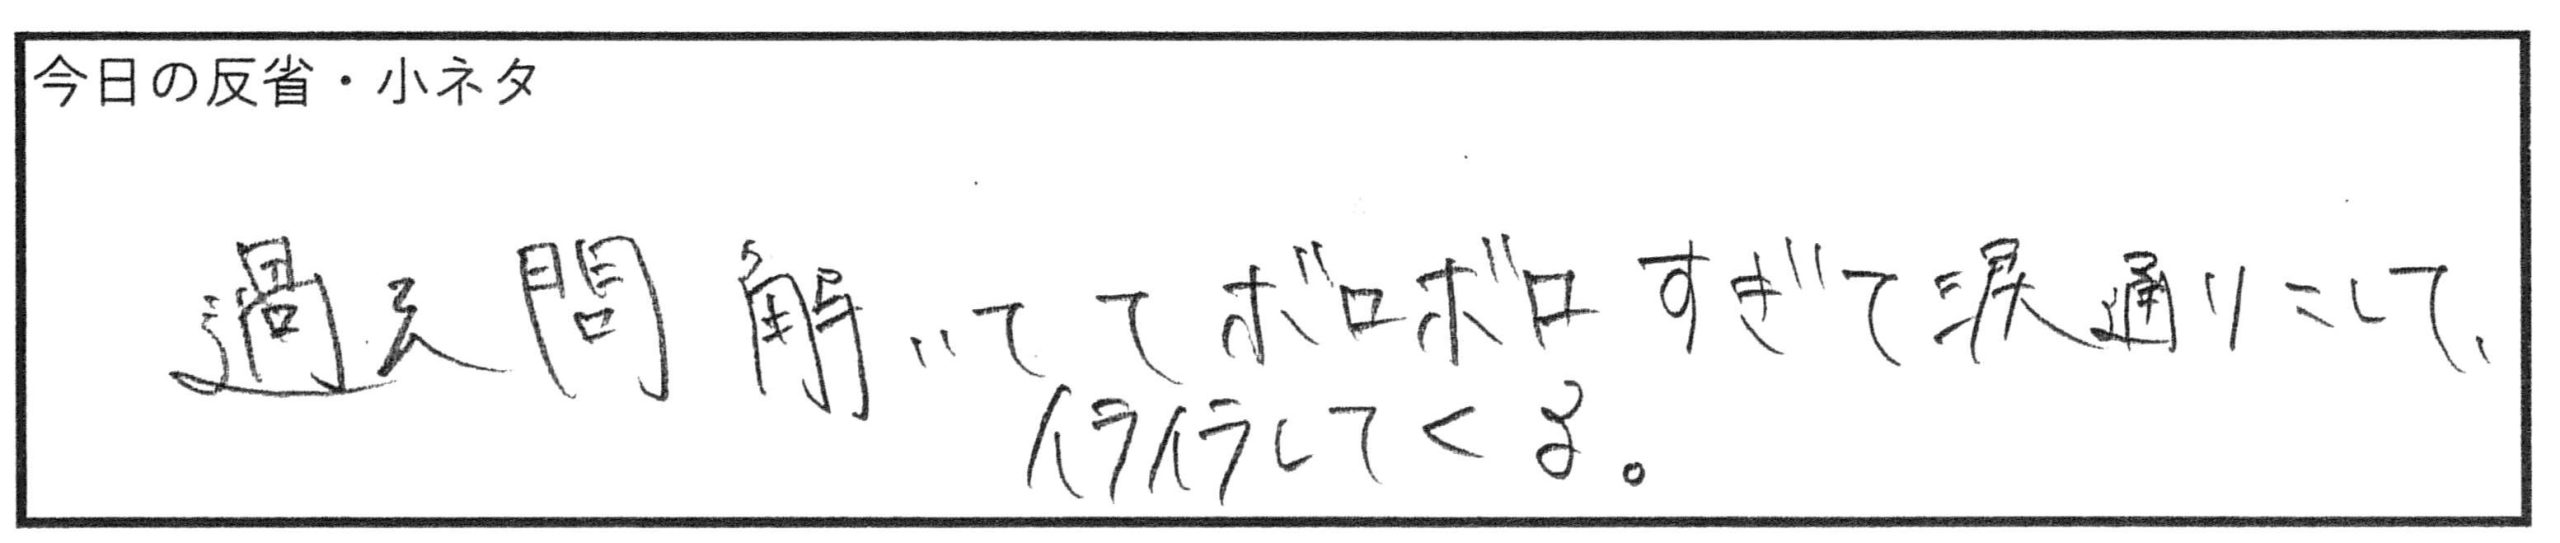 今日の反省・小ネタ
過去問解いててボロボロすぎて涙通りこして、
イライラしてくる。